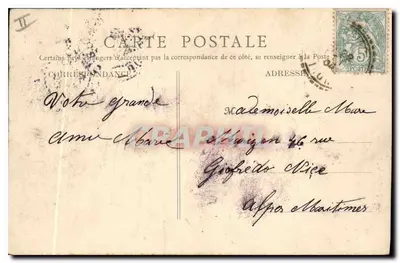 II
CARTE POSTALE
Certains pays étrangers n'acceptent pas la correspondance de ce côté, se renseigner à la Poste
CORRESPONDANCE
ADRESSE
Votre grande
amie Marie
Mademoiselle
46 rue
Gioffredo Nice
Alpes Maritimes